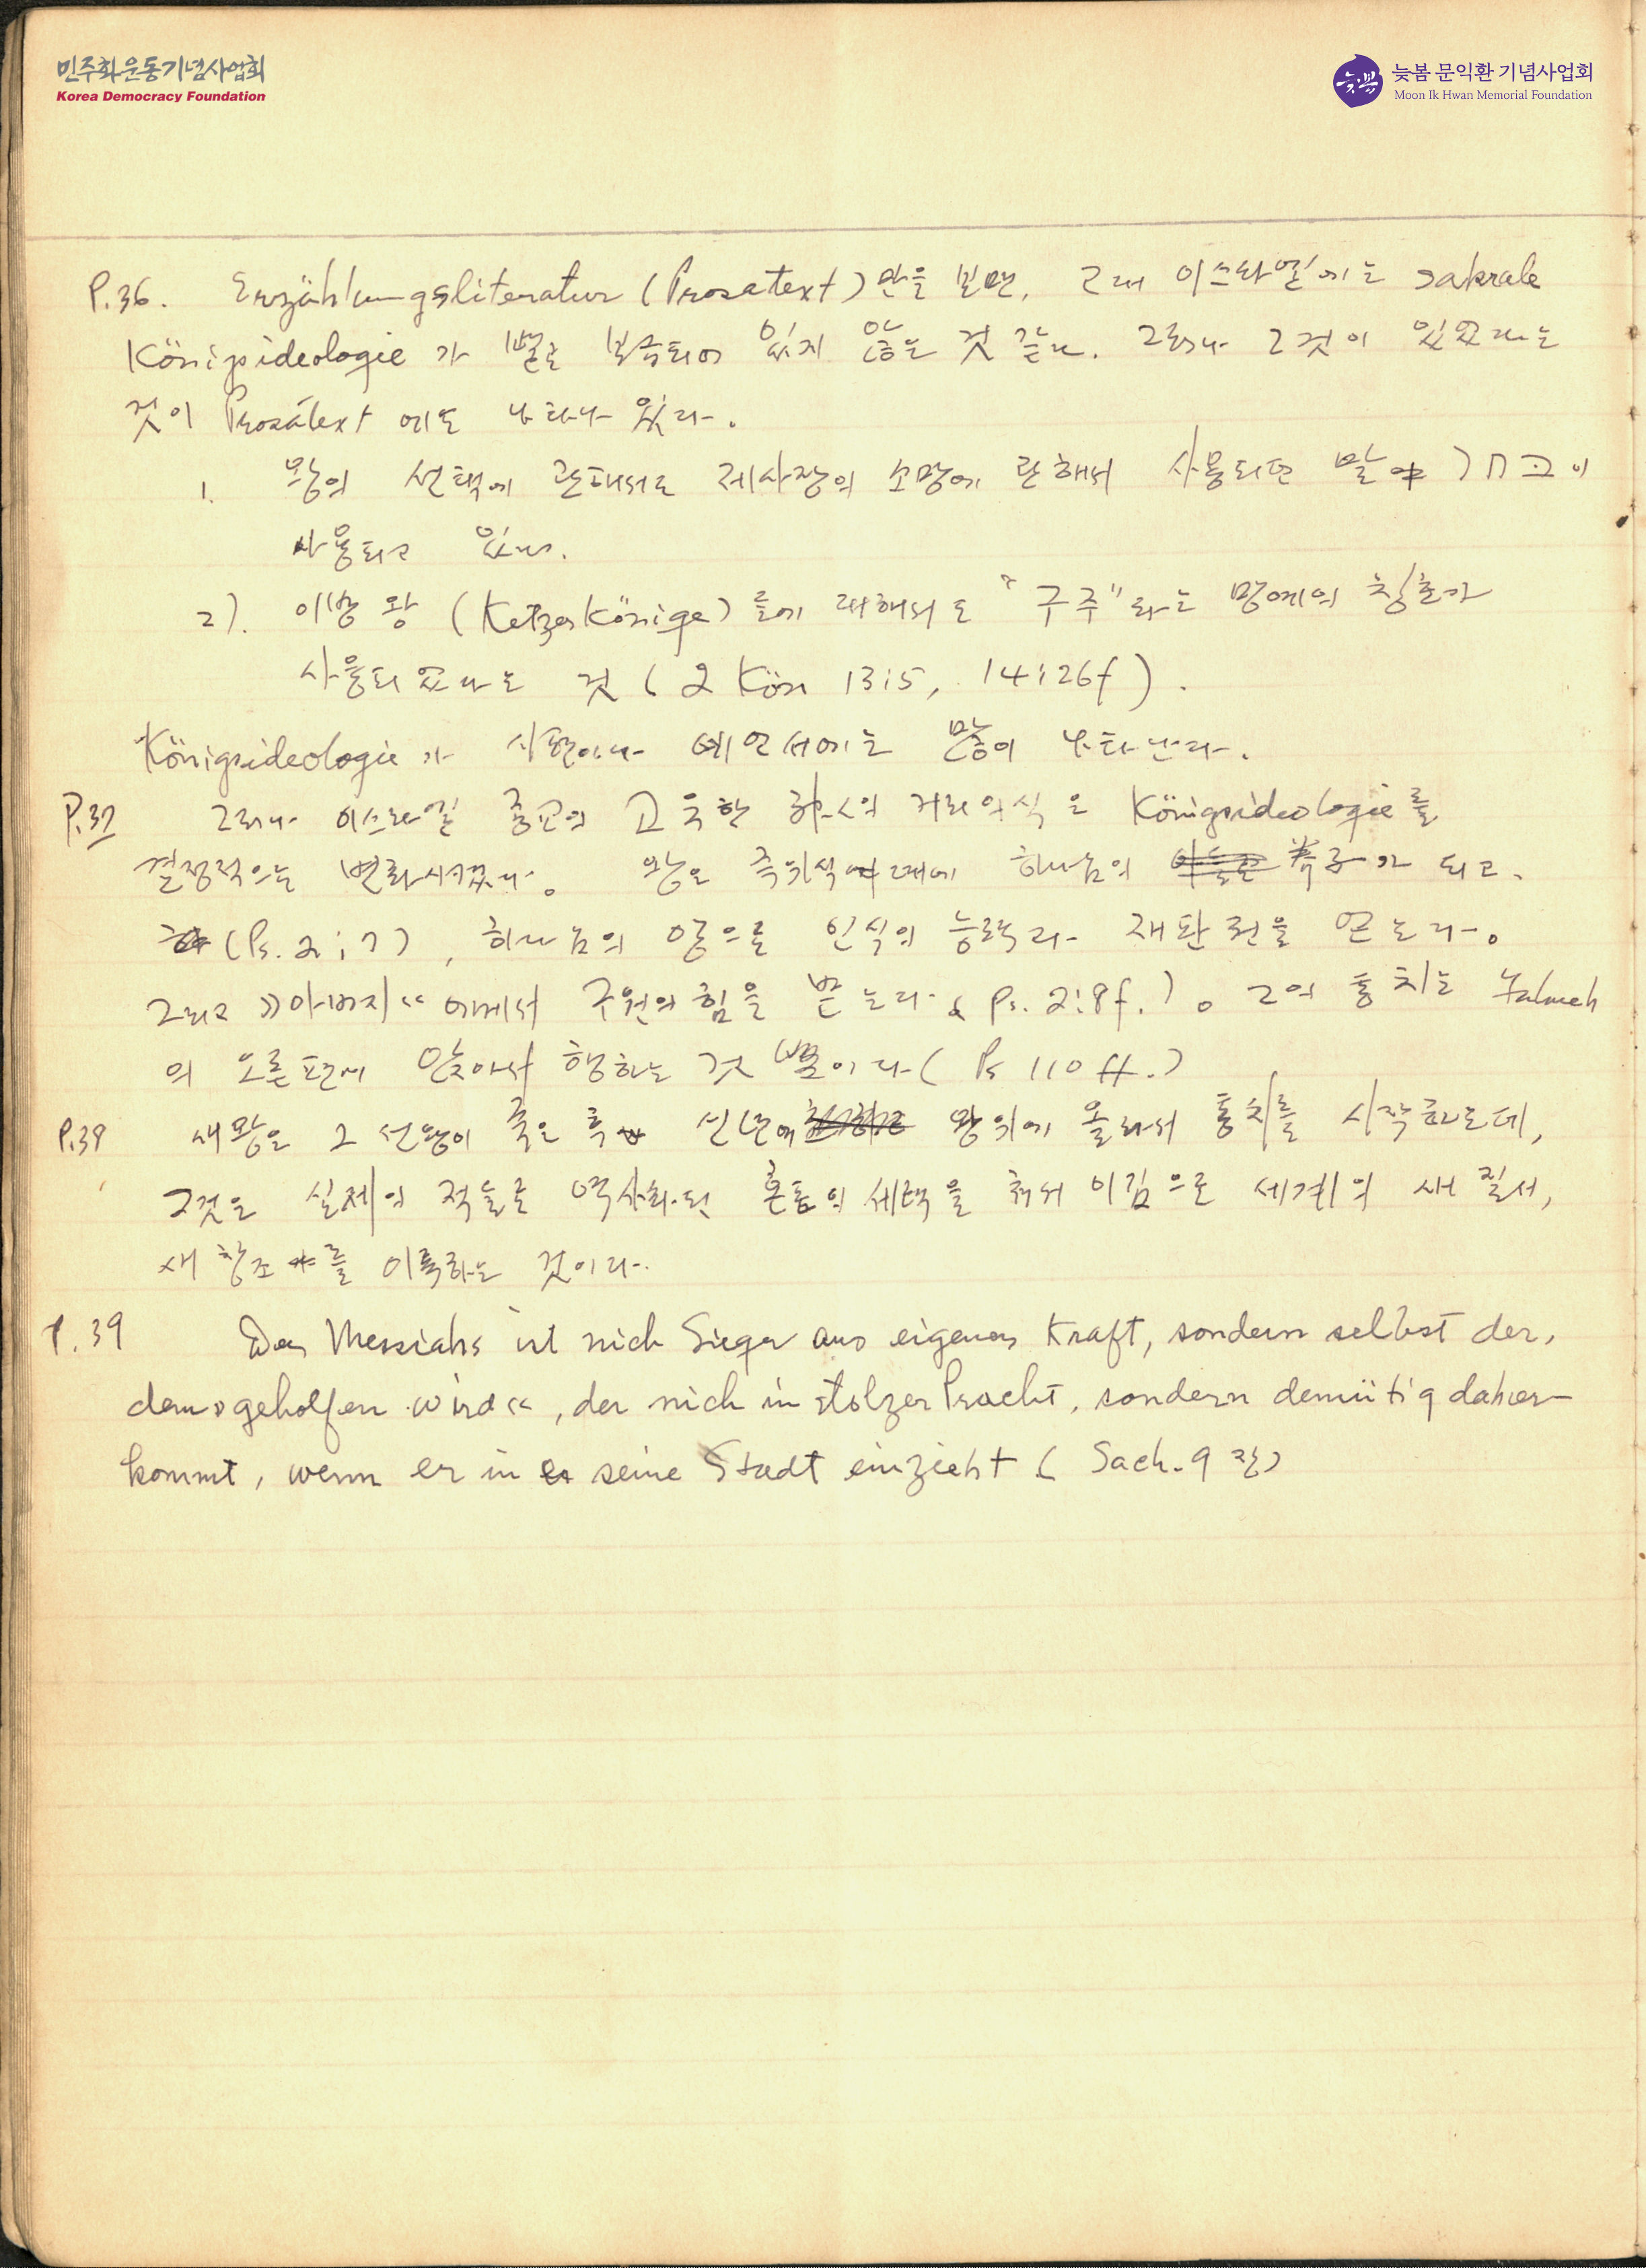 민주화운동기념사업회
Korea Democracy Foundation
늦봄 문익환 기념사업회
Moon Ik Hwan Memorial Foundation
늦봄
P.36. Erzählungsliteratur (Prosatext) 만을 보면, 고대 이스라엘에는 sakrale
Königsideologie 가 별로 보급되어 있지 않은 것 같다. 그러나 그것이 있었다는
것이 Prosatext 에도 나타나 있다.
1. 왕의 선택에 관해서도 제사장의 소명에 관해서 사용되던 말 בחר이
사용되고 있다.
2). 이방 왕 (Ketzerkönige) 들에 대해서도 "구주"라는 명예의 칭호가
사용되었다는 것 (2 Kön 13:5, 14:26f).
Königsideologie 가 시편이나 예언서에는 많이 나타난다.
P.37 그러나 이스라엘 종교의 고유한 하나님의 거리의식은 Königsideologie를
결정적으로 변화시켰다. 왕은 즉위식 때에 하나님의 養子가 되고,
(Ps. 2:7), 하나님의 영으로 인식의 능력과 재판권을 얻는다.
그리고 »아버지« 에게서 구원의 힘을 받는다 (Ps. 2:8f.). 그의 통치는 Jahweh
의 오른편에 앉아서 행하는 것 뿐이다 (Ps 110 ff.)
P.38 새 왕은 그 선왕이 죽은 후 신년에 왕위에 올라서 통치를 시작하는데,
그것은 실제의 적들로 역사화된 혼돈의 세력을 쳐서 이김으로 세계의 새 질서,
새 창조를 이룩하는 것이다.
P.39 Der Messiahs ist nich Sieger aus eigener Kraft, sondern selbst der,
dem »geholfen wird«, der nich in stolzer Pracht, sondern demütig daher-
kommt, wenn er in seine Stadt einzieht (Sach. 9 장)